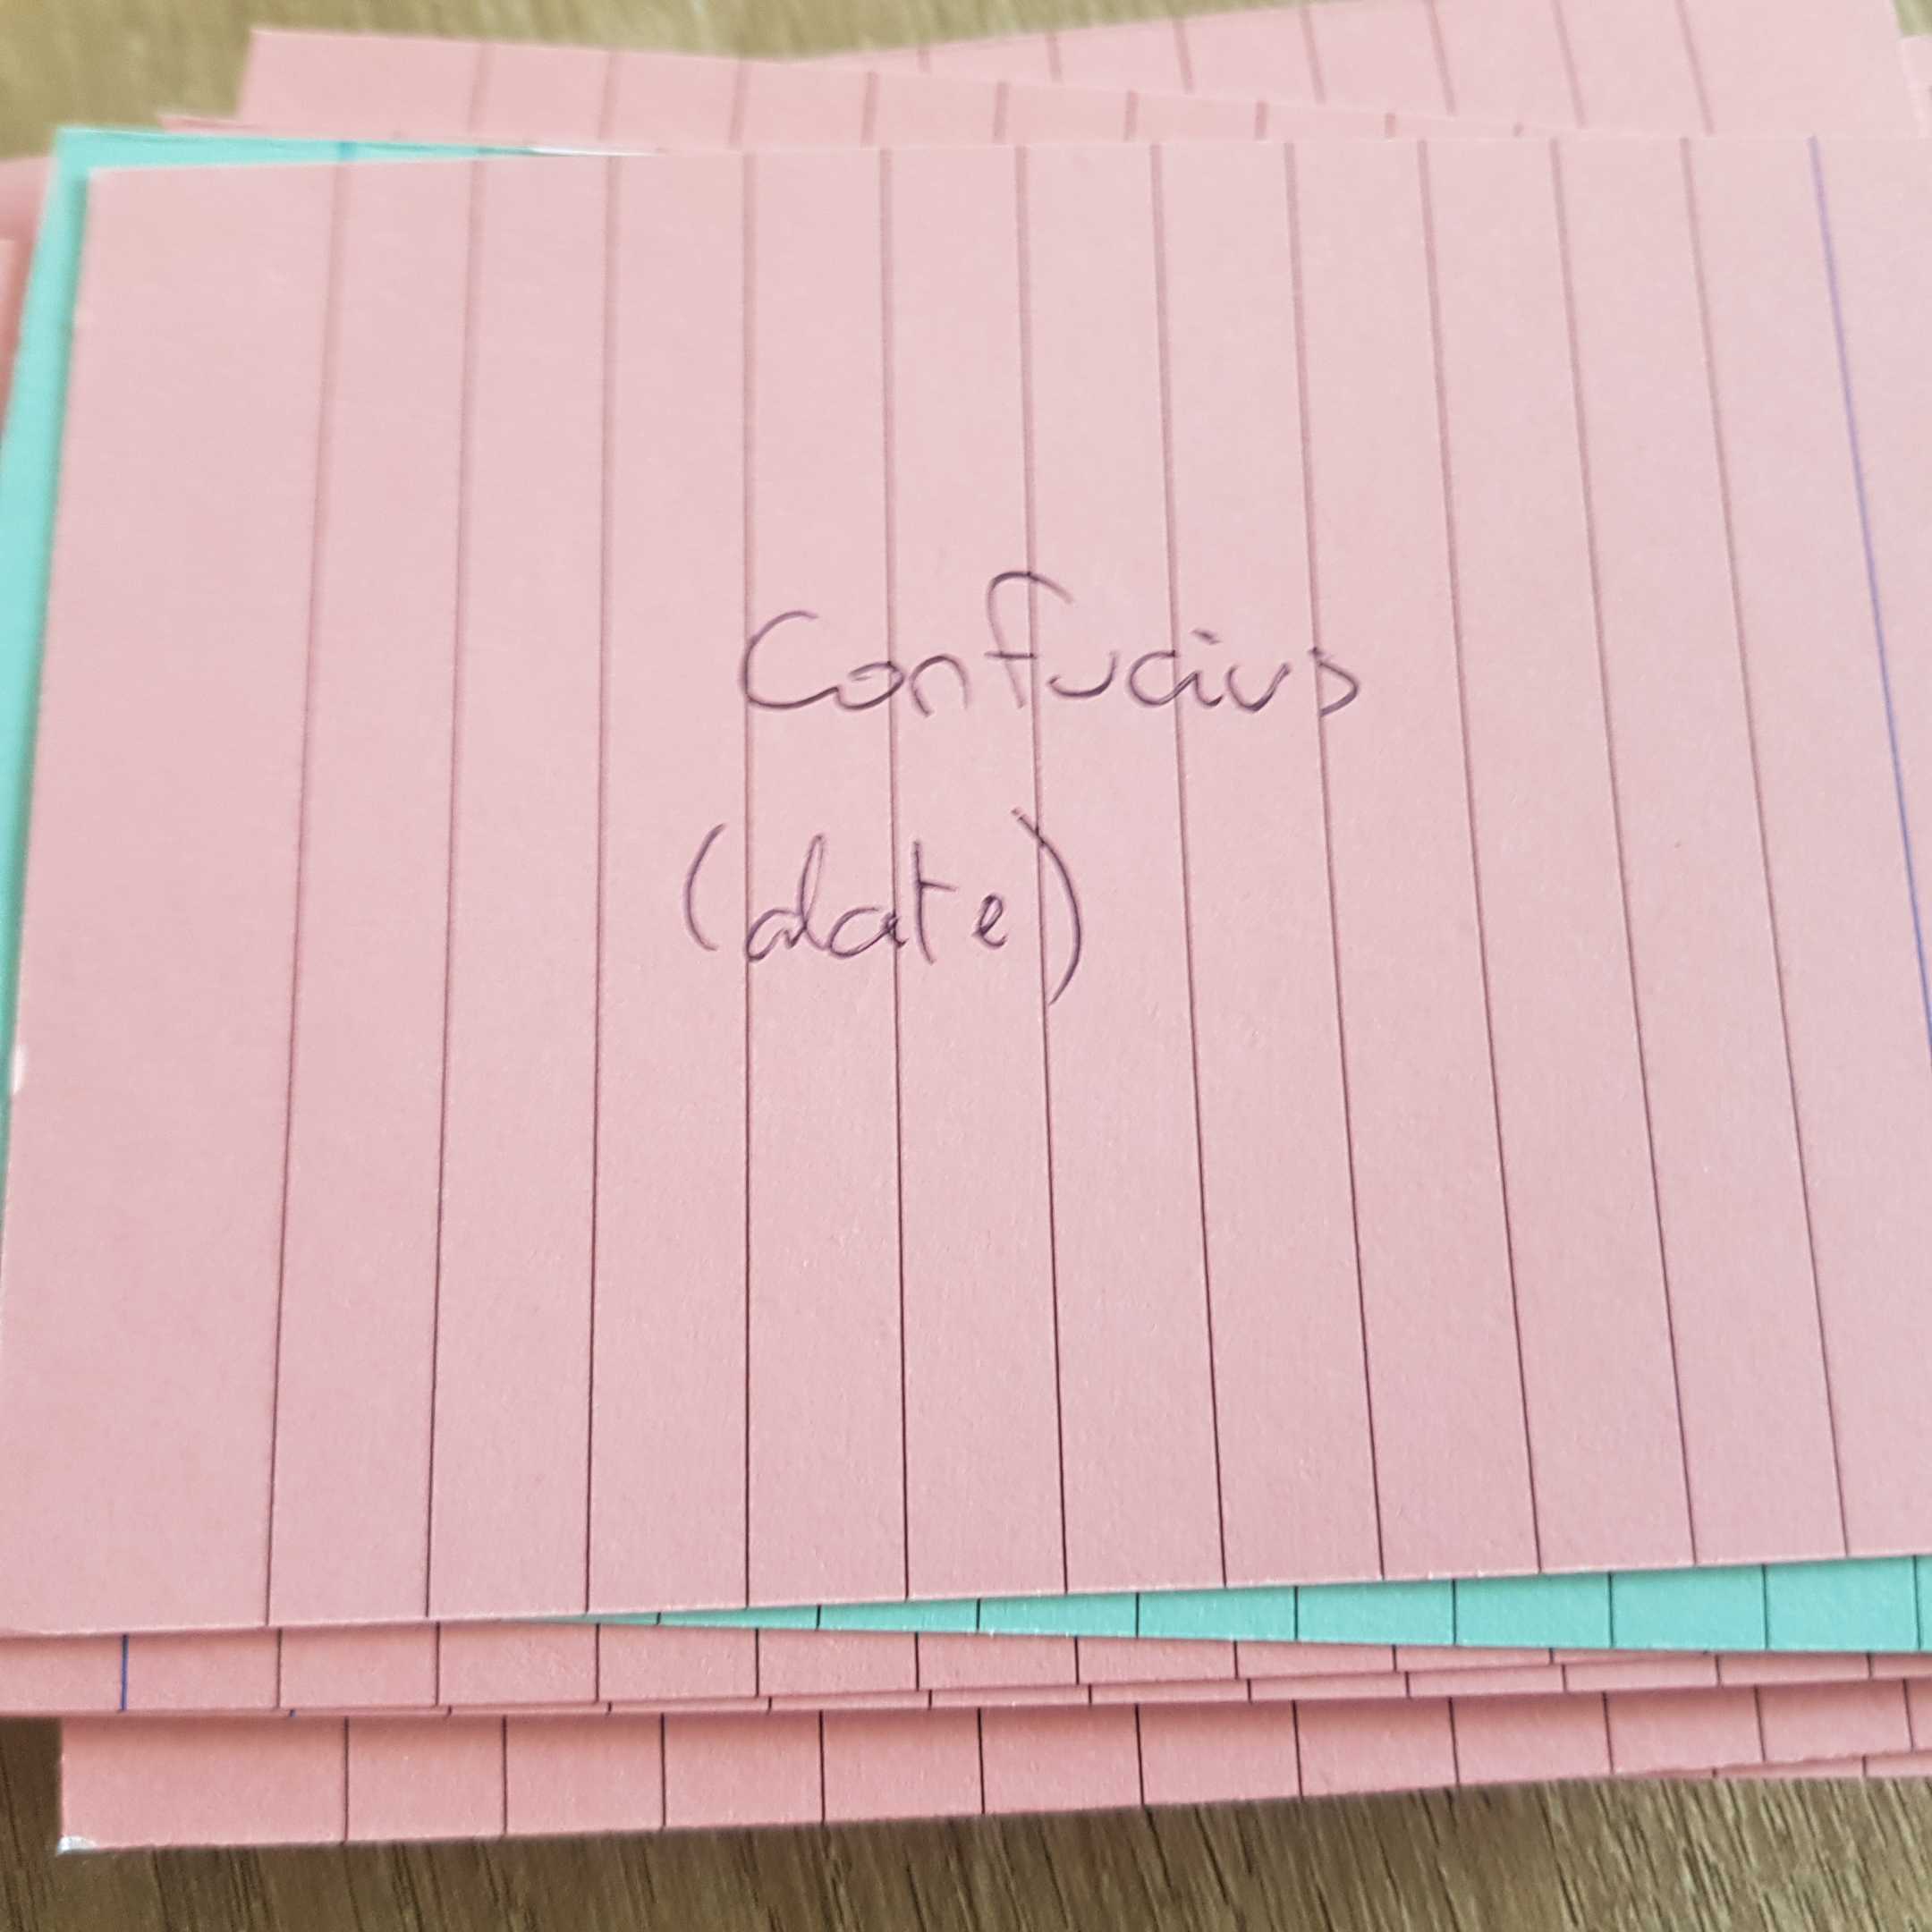 Confucius
(date)